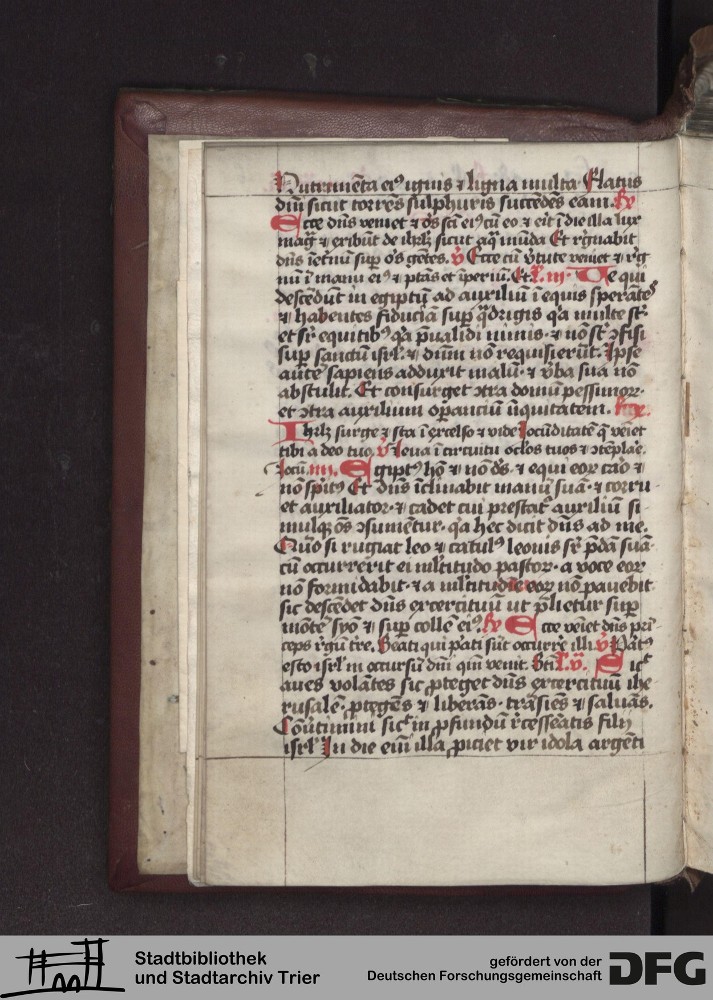 Nutrimēta eiꝰ ignis ⁊ ligna multa Flatus
dn̄i sicut torrēs sulphuris succēdēs eam. R̄
Ecce dn̄s veniet ⁊ oēs sc̄i eiꝰ cū eo ⁊ eīt ī die illa lux
mag̃ ⁊ exibūt de ihrl̄m sicut aq̄ mūda Et r̄gnabit
dn̄s īet̄nū suꝑ oēs gētes. v̄ Ecce cū v̄tute veniet ⁊ r̄g
nū ī manu eiꝰ ⁊ p̄tās et īperiū. Et. L. iii. Ue qui
descēdūt in egiptū ad auxiliū ī equis sperātes
⁊ habentes fiduciā suꝑ q̄drigis q̄a multe st̄
et sr̄ equitibꝰ q̄a p̄ualidi nimis. ⁊ nō st̄ ꝯfisi
suꝑ sanctū isrl̄. ⁊ dn̄m nō requisierūt. Ipse
autē sapiens adduxit malū. ⁊ v̄ba sua nō
abstulit. Et consurget ꝯtra domū pessimoꝝ.
et ꝯtra auxilium oꝑanciū īiquitatem. R̄
Ihrl̄m surge ⁊ sta ī excelso ⁊ vide Iocūditatē q̄ veīet
tibi a deo tuo. v̄ Leua ī circuitu oc̄los tuos ⁊ ꝯtēplare.
Iocū. iiii. Egiptꝰ hō ⁊ nō dē̄s. ⁊ equi eoꝝ caro ⁊
nō sp̄itꝰ Et dn̄s īclinabit manū suā. ⁊ corru
et auxiliator. ⁊ cadet cui prestatꝰ auxiliū si
mulqꝫ oēs ꝯsumētur. q̄a hec dicit dn̄s ad me.
Quō si rugiat leo ⁊ catulꝰ leonis sr̄ p̄dā suā.
cū occurrerit ei ml̄titudo pastoꝝ. a voce eoꝝ
nō formidabit. ⁊ a ml̄titudīe eoꝝ nō pauebit
sic descēdet dn̄s exercituū ut p̄lietur suꝑ
mōtē syō ⁊ suꝑ collē eiꝰ. R̄ Ecce veīet dn̄s pri
ceps r̄gū tr̄e. Beati qui p̄ati sūt occurre illi v̄ P̄atꝰ
esto isrl̄ in occursū dn̄i qm̄ venit. Bt̄i L. v̄. Sicᷓ
aues volātes sic ꝓteget dn̄s exercituū ihe
rusalē. ꝓtegēs ⁊ liberās. trāsies ⁊ saluās.
Cōūtimini sicᷓ in ꝓfundū r̄cesseatis filij
isrl̄ In die eīm illa ꝓiciet vir idola argēti
Stadtbibliothek
und Stadtarchiv Trier
gefördert von der
Deutschen Forschungsgemeinschaft DFG